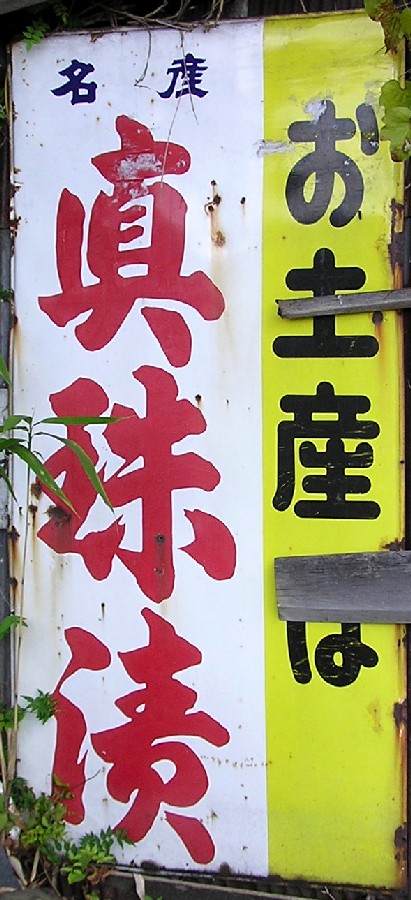 お土産は
名産
真珠漬